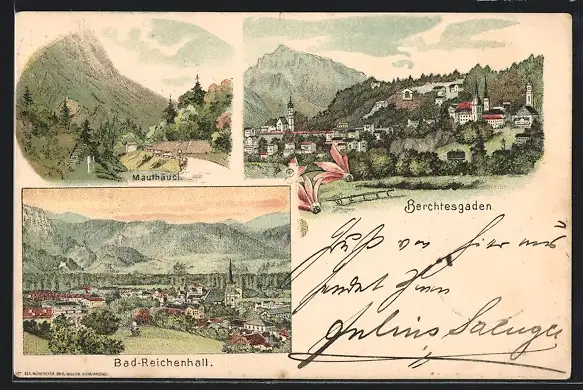 Mauthäusl.
Berchtesgaden
Bad-Reichenhall.
Gruß von hier aus
sendet Ihnen
Julius